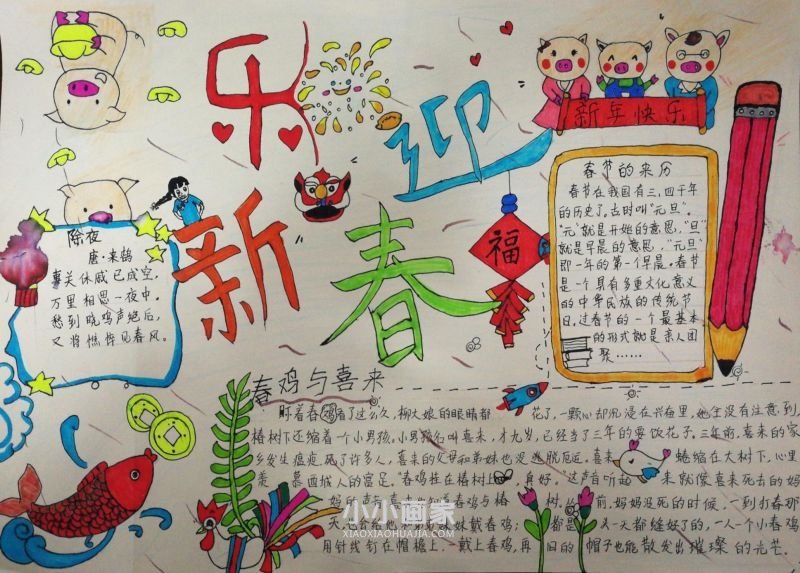 乐
迎
新
春
新年快乐
福
除夜
唐·来鹄
事关休戚已成空,
万里相思一夜中。
愁到晓鸡声绝后,
又将憔悴见春风。
春节的来历
春节在我国有三、四千年
的历史了,古时叫“元旦”。
“元”就是开始的意思,“旦”
就是早晨的意思,“元旦”
即一年的第一个早晨。春节
是一个具有多重文化意义
的中华民族的传统节
日,过春节的一个最基本
的形式就是亲人团
聚……
春鸡与喜来
盯着春鸡看了这么久,柳大娘的眼睛都花了,一颗心却沉浸在兴奋里,她全没有注意到,
椿树下还缩着一个小男孩。小男孩名叫喜来,才九岁,已经当了三年的要饭花子。三年前,喜来的家
乡发生瘟疫,死了许多人,喜来的父母和弟妹也没逃脱厄运。喜来蜷缩在大树下,心里
羡慕西城人的富足。“春鸡挂在椿树上真好。”这声音听起来就像喜来死去的妈
妈的声音,喜春鸡与椿树前,妈妈没死的时候,一到打春那
天,也会给他和妹妹戴春鸡,都是天一天都缝好了的,一人一个小春鸡
用针线钉在帽檐上,戴上春鸡,再旧的帽子也能散发出璀璨的光芒。
小小画家
XIAOXIAOHUAJIA.COM